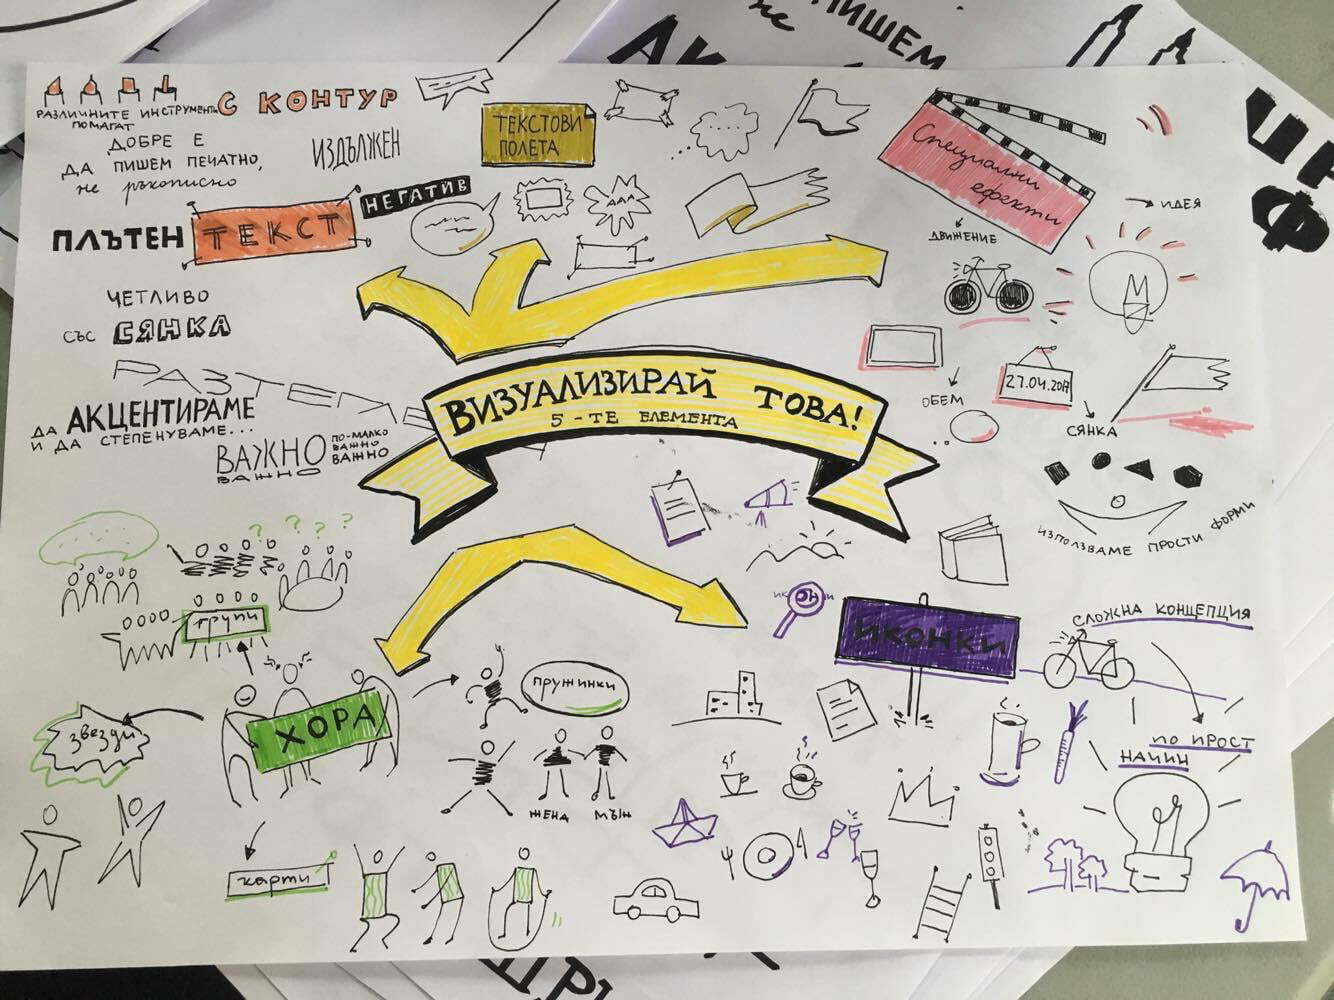 РАЗЛИЧНИТЕ ИНСТРУМЕНТИ
ПОМАГАТ
ДОБРЕ Е
ДА ПИШЕМ ПЕЧАТНО,
не ръкописно
С КОНТУР
ИЗДЪЛЖЕН
НЕГАТИВ
ПЛЪТЕН ТЕКСТ
ЧЕТЛИВО
СЪС СЯНКА
РАЗТЕГЛ
ДА АКЦЕНТИРАМЕ
И ДА СТЕПЕНУВАМЕ...
ВАЖНО
ВАЖНО
ПО-МАЛКО
ВАЖНО
ВАЖНО
ТЕКСТОВИ
ПОЛЕТА
ААА
Специални
ефекти
ДВИЖЕНИЕ
ИДЕЯ
ОБЕМ
27.04.2017
СЯНКА
ИЗПОЛЗВАМЕ ПРОСТИ ФОРМИ
ВИЗУАЛИЗИРАЙ ТОВА!
5-ТЕ ЕЛЕМЕНТА
? ? ? ?
групи
ХОРА
звезди
карти
пружинки
ЖЕНА
МЪЖ
ИКОНКИ
ИКОНКИ
СЛОЖНА КОНЦЕПЦИЯ
ПО ПРОСТ
НАЧИН
ПИШЕМ
не